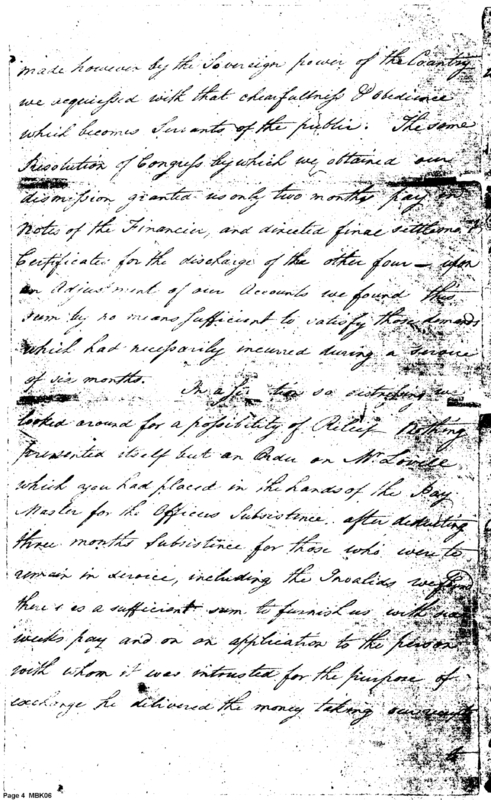 made however by the Sovereign power of the Country
we acquiessed with that chearfullness & obedience
which becomes Servants of the public. The same
Resolution of Congress by which we obtained our
dismission granted us only two months pay in
notes of the Financier, and directed final settlement
Certificates for the discharge of the other four — upon
an Adjustment of our Accounts we found this
sum by no means sufficient to satisfy those demands
which had necessarily incurred during a service
of six months. In a so distressing we
looked around for a possibility of Releif Nothing
presented itself but an Order on Mr Lovell
which you had placed in the hands of the Pay
Master for the Officers Subsistence. after deducting
three months Subsistence for those who were to
remain in service, including the Invalids we found
there is a sufficient sum to furnish us with
weeks pay and on an application to the person
with whom it was intrusted for the purpose of
exchange he delivered the money taking our receipts
to
Page 4 MBK06